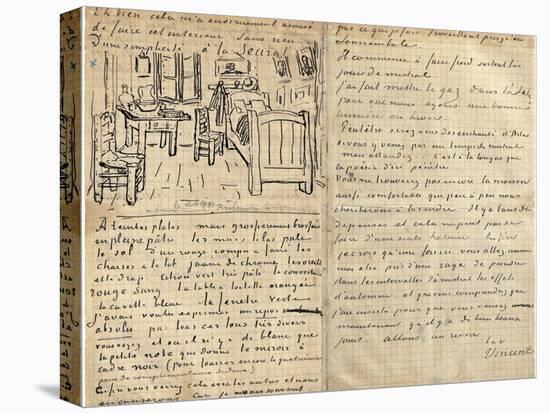 Eh bien cela m'a enormement amusé
de faire cet interieur sans rien
D'une simplicité à la Seurat
A teintes plates mais grossierement brossées
en pleine pâte les murs lilas pâle
le sol d'un rouge rompu & fané les
chaises & le lit jaune de chrome les oreillers
et le drap citron vert très pâle la couverture
rouge sang la table à toilette orangée
la cuvette bleue la fenêtre verte
j'avais voulu exprimer un repos
absolu par tous ces tons très divers
vous voyez et où il n'y a de blanc que
la petite note que donne le miroir à
cadre noir (pour fourrer encore la quatrième
paire de complémentaires dedans)
Enfin vous verrez cela avec les autres et nous
en causerons car je ne sais souvent
pas ce que je fais travaillant presqu'en
somnambule
Il commence à faire froid surtout les
jours de mistral
J'ai fait mettre le gaz dans l'atelier
pour que nous ayons une bonne
lumière en hiver
Peutêtre serez vous desenchanté d'Arles
si vous y venez par un temps de mistral
mais attendez. C'est à la longue que
la poësie d'ici pénètre
Vous ne trouverez pas encore la maison
aussi confortable que peu à peu nous
chercherons à la rendre. Il y a tant de
depenses et cela ne peut pas se
faire d'une seule haleine. Enfin
je crois qu'une fois ici vous allez comme
moi être pris d'une rage de peindre
dans les intervalles du mistral les effets
d'automne et que vous comprendrez que
j'aie insisté pour que vous veniez
maintenant qu'il y a de bien beaux
jours allons au revoir
t. à v.
Vincent